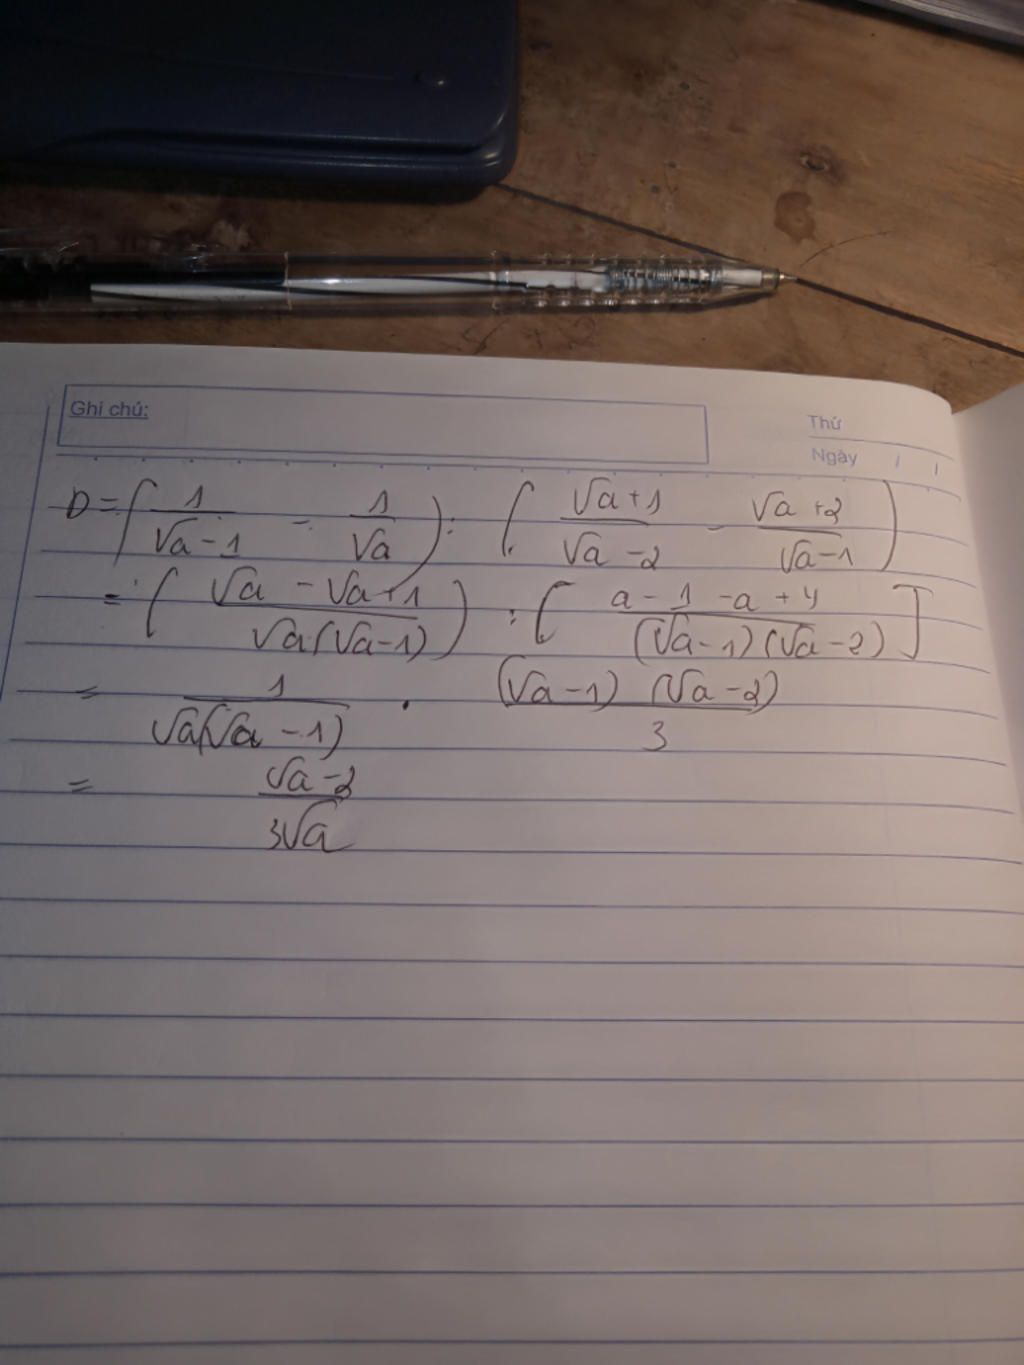 Ghi chú:
Thứ
Ngày / /
D = (1/(√a - 1) - 1/√a) : ((√a + 1)/(√a - 2) - (√a + 2)/(√a - 1))
= (√a - √a + 1)/(√a (√a - 1)) : [(a - 1 - a + 4)/((√a - 1)(√a - 2))]
= 1/(√a(√a - 1)) . (√a - 1) (√a - 2)/3
= (√a - 2)/(3√a)